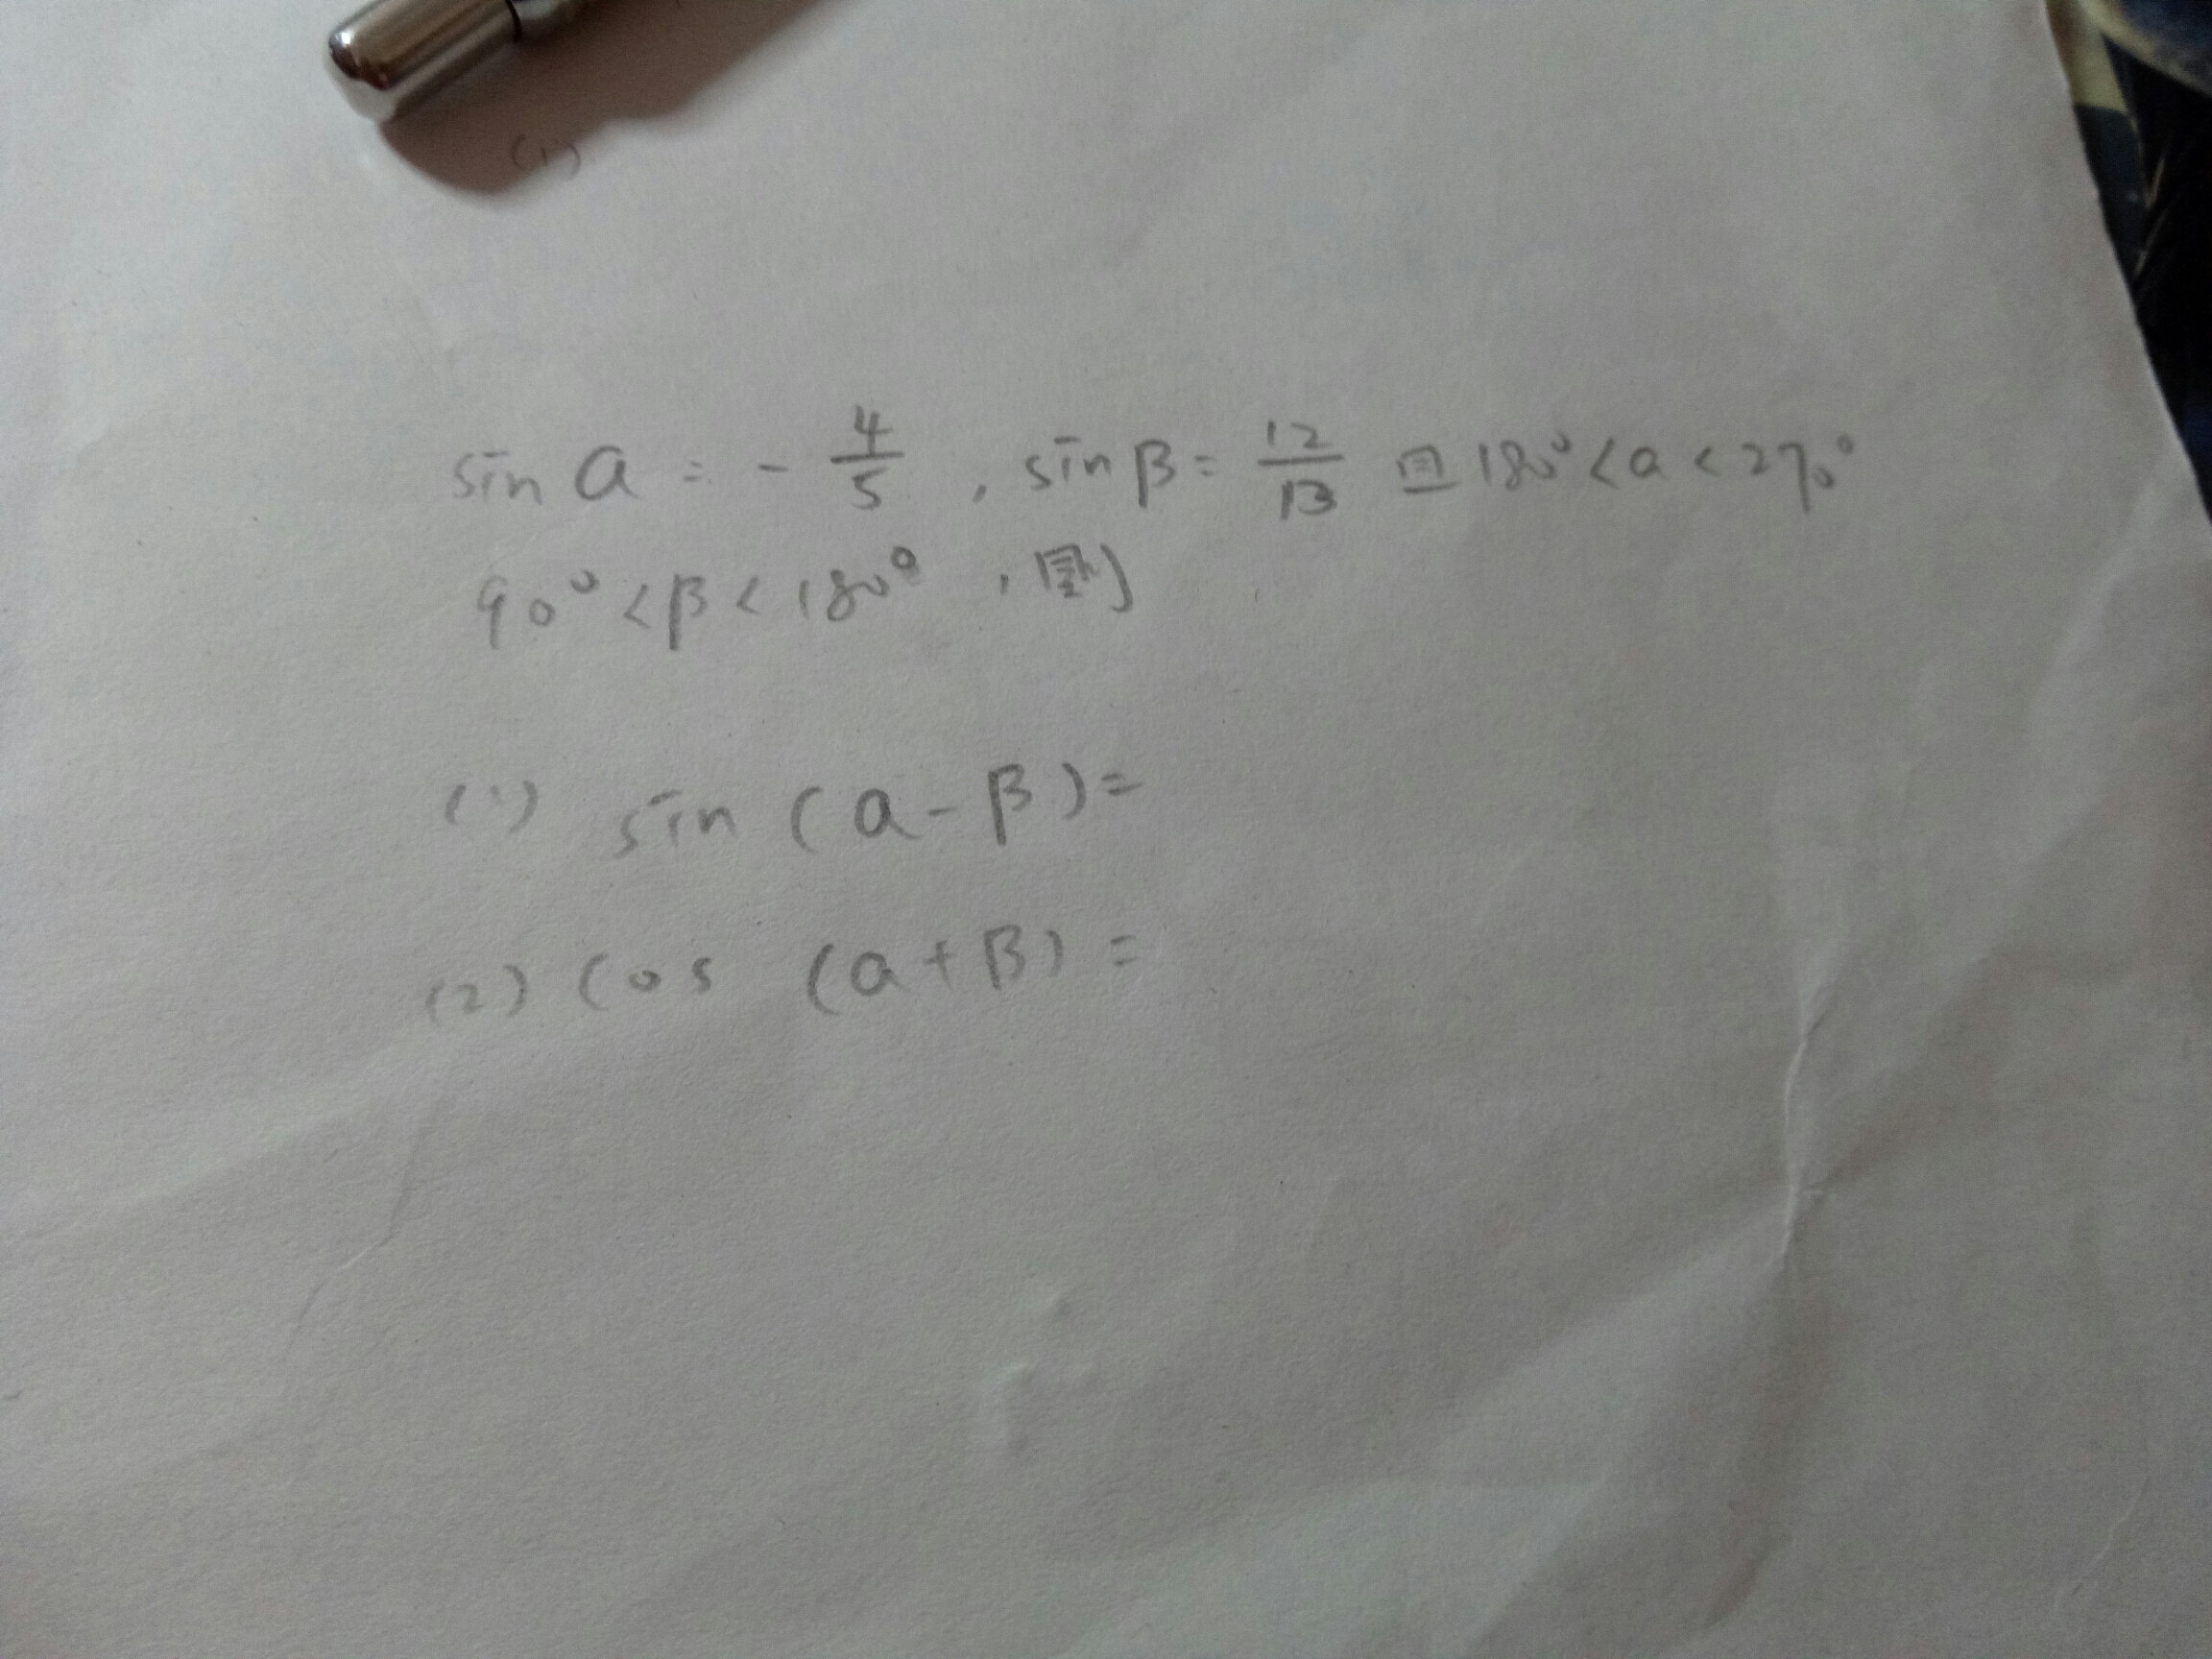 (1)
sin a = - 4/5 , sin β = 12/13 且 180° < a < 270°
90° < β < 180° , 則
(1) sin (a - β) =
(2) cos (a + β) =